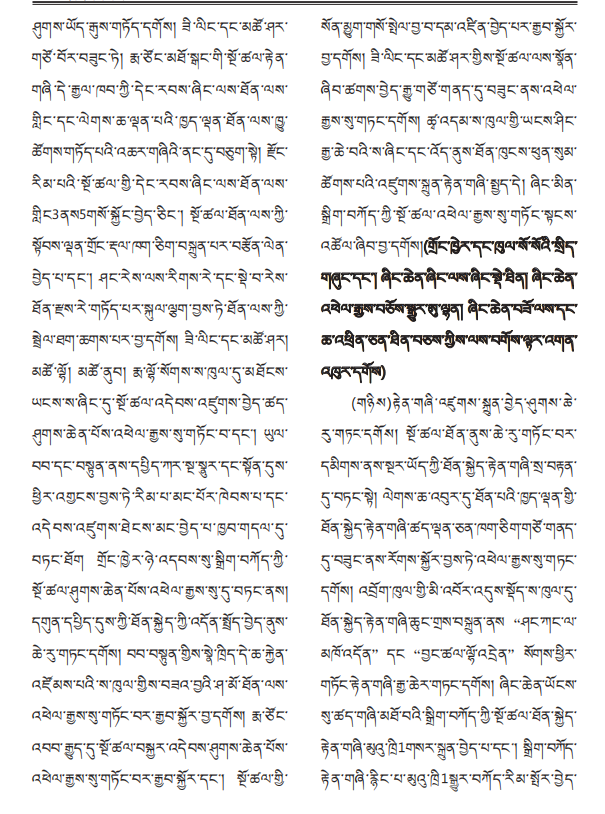 ཤུགས་ཡོད་རྒྱས་གཏོད་དགོས། ཟི་ལིང་དང་མཚོ་ཤར་
གཙོ་བོར་བཟུང་ཏེ། རྨ་ཙོང་མཐོ་སྒང་གི་སྔོ་ཚལ་རྟེན་
གཞི་དེ་རྒྱལ་ཁབ་ཀྱི་དེང་རབས་ཞིང་ལས་ཐོན་ལས་
གླིང་དང་ལེགས་ཆ་ལྡན་པའི་ཁྱད་ལྡན་ཐོན་ལས་ཁྱུ་
ཚོགས་གཏོད་པའི་འཆར་གཞིའི་ནང་དུ་བཅུག་སྟེ། རྫོང་
རིམ་པའི་སྔོ་ཚལ་གྱི་དེང་རབས་ཞིང་ལས་ཐོན་ལས་
གླིང3ནས5གསོ་སྐྱོང་བྱེད་ཅིང་། སྔོ་ཚལ་ཐོན་ལས་ཀྱི་
སྟོབས་ལྡན་གྲོང་རྡལ་ཁག་ཅིག་བསྐྲུན་པར་བརྩོན་ལེན་
བྱེད་པ་དང་། ཤང་རེས་ལས་རིགས་རེ་དང་སྡེ་བ་རེས་
ཐོན་རྫས་རེ་གཏོད་པར་སྐུལ་ལྕག་བྱས་ཏེ་ཐོན་ལས་ཀྱི་
སྦྲེལ་ཐག་ཆགས་པར་བྱ་དགོས། ཟི་ལིང་དང་མཚོ་ཤར།
མཚོ་ལྷོ། མཚོ་ནུབ། རྨ་ལྷོ་སོགས་ས་ཁུལ་དུ་མཐོངས་
ཡངས་ས་ཞིང་དུ་སྔོ་ཚལ་འདེབས་འཛུགས་བྱེད་ཚད་
ཤུགས་ཆེན་པོས་འཕེལ་རྒྱས་སུ་གཏོང་བ་དང་། ཡུལ་
བབ་དང་བསྟུན་ནས་དཔྱིད་ཀར་སྔ་སྨྱུར་དང་སྟོན་དུས་
ཕྱིར་འགྱངས་བྱས་ཏེ་རིམ་པ་མང་པོར་ཁེབས་པ་དང་
འདེབས་འཛུགས་ཐེངས་མང་བྱེད་པ་ཁྱབ་གདལ་དུ་
བཏང་ཐོག གྲོང་ཁྱེར་ཉེ་འདབས་སུ་སྒྲིག་བཀོད་ཀྱི་
སྔོ་ཚལ་ཤུགས་ཆེན་པོས་འཕེལ་རྒྱས་སུ་དུ་བཏང་ནས།
དགུན་དཔྱིད་དུས་ཀྱི་ཐོན་སྐྱེད་ཀྱི་འདོན་སྤྲོད་བྱེད་ནུས་
ཆེ་རུ་གཏང་དགོས། བབ་བསྟུན་གྱིས་སྣེ་ཁྲིད་དེ་ཆ་རྐྱེན་
འཛོམས་པའི་ས་ཁུལ་གྱིས་བཟའ་བྱའི་ཤ་མོ་ཐོན་ལས་
འཕེལ་རྒྱས་སུ་གཏོང་བར་རྒྱབ་སྐྱོར་བྱ་དགོས། རྨ་ཙོང་
འབབ་རྒྱུད་དུ་སྔོ་ཚལ་བསྐྱར་འདེབས་ཤུགས་ཆེན་པོས་
འཕེལ་རྒྱས་སུ་གཏོང་བར་རྒྱབ་སྐྱོར་དང་། སྔོ་ཚལ་གྱི་
སོན་མྱུག་གསོ་སྤེལ་བྱ་བ་དམ་འཛིན་བྱེད་པར་རྒྱབ་སྐྱོར་
བྱ་དགོས། ཟི་ལིང་དང་མཚོ་ཤར་གྱིས་སྔོ་ཚལ་ལས་སྣོན་
ཞིབ་ཚགས་བྱེད་རྒྱུ་གཙོ་གནད་དུ་བཟུང་ནས་འཕེལ་
རྒྱས་སུ་གཏང་དགོས། ཚྭ་འདམ་ས་ཁུལ་གྱི་ཡངས་ཤིང་
རྒྱ་ཆེ་བའི་ས་ཞིང་དང་འོད་ནུས་ཐོན་ཁུངས་ཕུན་སུམ་
ཚོགས་པའི་འཛུགས་སྐྲུན་རྟེན་གཞི་སྤྱད་དེ། ཞིང་མིན་
སྒྲིག་བཀོད་ཀྱི་སྔོ་ཚལ་འཕེལ་རྒྱས་སུ་གཏོང་སྟངས་
འཚོལ་ཞིབ་བྱ་དགོས།(གྲོང་ཁྱེར་དང་ཁུལ་སོ་སོའི་སྲིད་
གཞུང་དང་། ཞིང་ཆེན་ཞིང་ལས་ཞིང་སྡེ་ཐིན། ཞིང་ཆེན་
འཕེལ་རྒྱས་བཅོས་སྒྱུར་ཨུ་ལྷན། ཞིང་ཆེན་བཟོ་ལས་དང་
ཆ་འཕྲིན་ཅན་ཐིན་བཅས་ཀྱིས་ལས་བགོས་ལྟར་འགན་
འཁུར་དགོས)
(གཉིས)རྟེན་གཞི་འཛུགས་སྐྲུན་བྱེད་ཤུགས་ཆེ་
རུ་གཏང་དགོས། སྔོ་ཚལ་ཐོན་ནུས་ཆེ་རུ་གཏོང་བར་
དམིགས་ནས་སྔར་ཡོད་ཀྱི་ཐོན་སྐྱེད་རྟེན་གཞི་སྲ་བརྟན་
དུ་བཏང་སྟེ། ལེགས་ཆ་འབུར་དུ་ཐོན་པའི་ཁྱད་ལྡན་གྱི་
ཐོན་སྐྱེད་རྟེན་གཞི་ཚད་ལྡན་ཅན་ཁག་ཅིག་གཙོ་གནད་
དུ་བཟུང་ནས་རོགས་སྐྱོར་བྱས་ཏེ་འཕེལ་རྒྱས་སུ་གཏང་
དགོས། འབྲོག་ཁུལ་གྱི་མི་འབོར་འདུས་སྡོད་ས་ཁུལ་དུ་
ཐོན་སྐྱེད་རྟེན་གཞི་ཆུང་གྲས་བསྐྲུན་ནས “ཤང་ཀང་ལ་
མཁོ་འདོན” དང “བྱང་ཚལ་ལྷོ་འདྲེན” སོགས་ཕྱིར་
གཏོང་རྟེན་གཞི་རྒྱ་ཆེར་གཏང་དགོས། ཞིང་ཆེན་ཡོངས་
སུ་ཚད་གཞི་མཐོ་བའི་སྒྲིག་བཀོད་ཀྱི་སྔོ་ཚལ་ཐོན་སྐྱེད་
རྟེན་གཞི་མུའུ་ཁྲི1གསར་སྐྲུན་བྱེད་པ་དང་། སྒྲིག་བཀོད་
རྟེན་གཞི་རྙིང་པ་མུའུ་ཁྲི1སྒྱུར་བཀོད་རིམ་སྤོར་བྱེད་